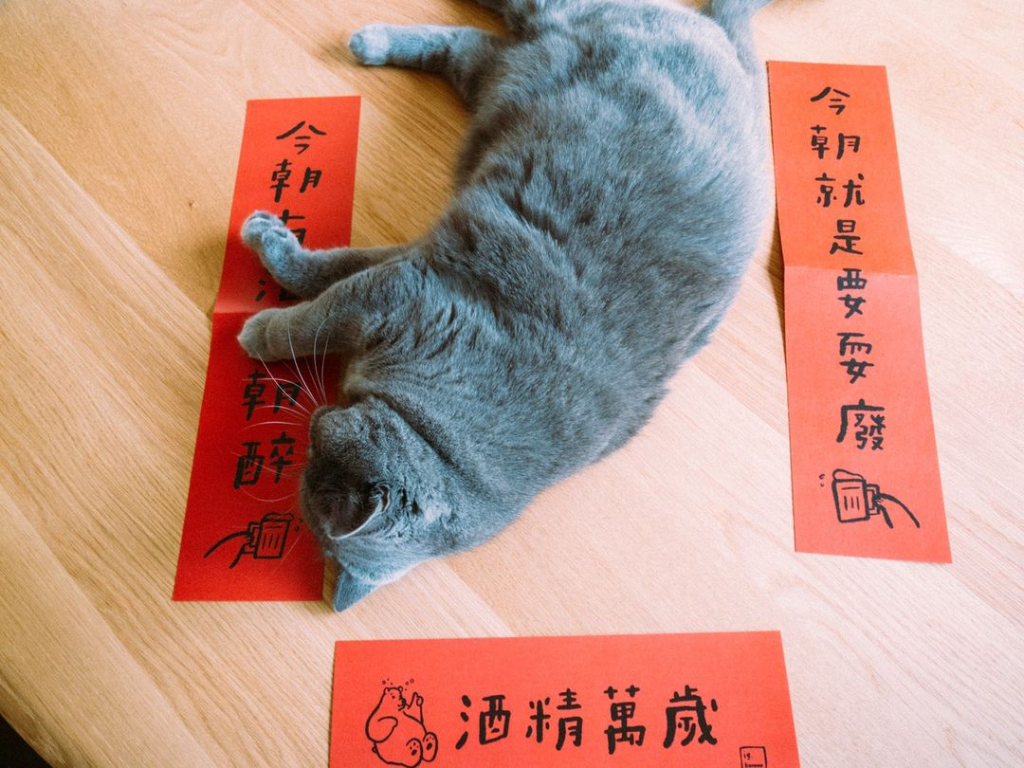 今朝就是要耍廢
今朝朝醉
酒精萬歲